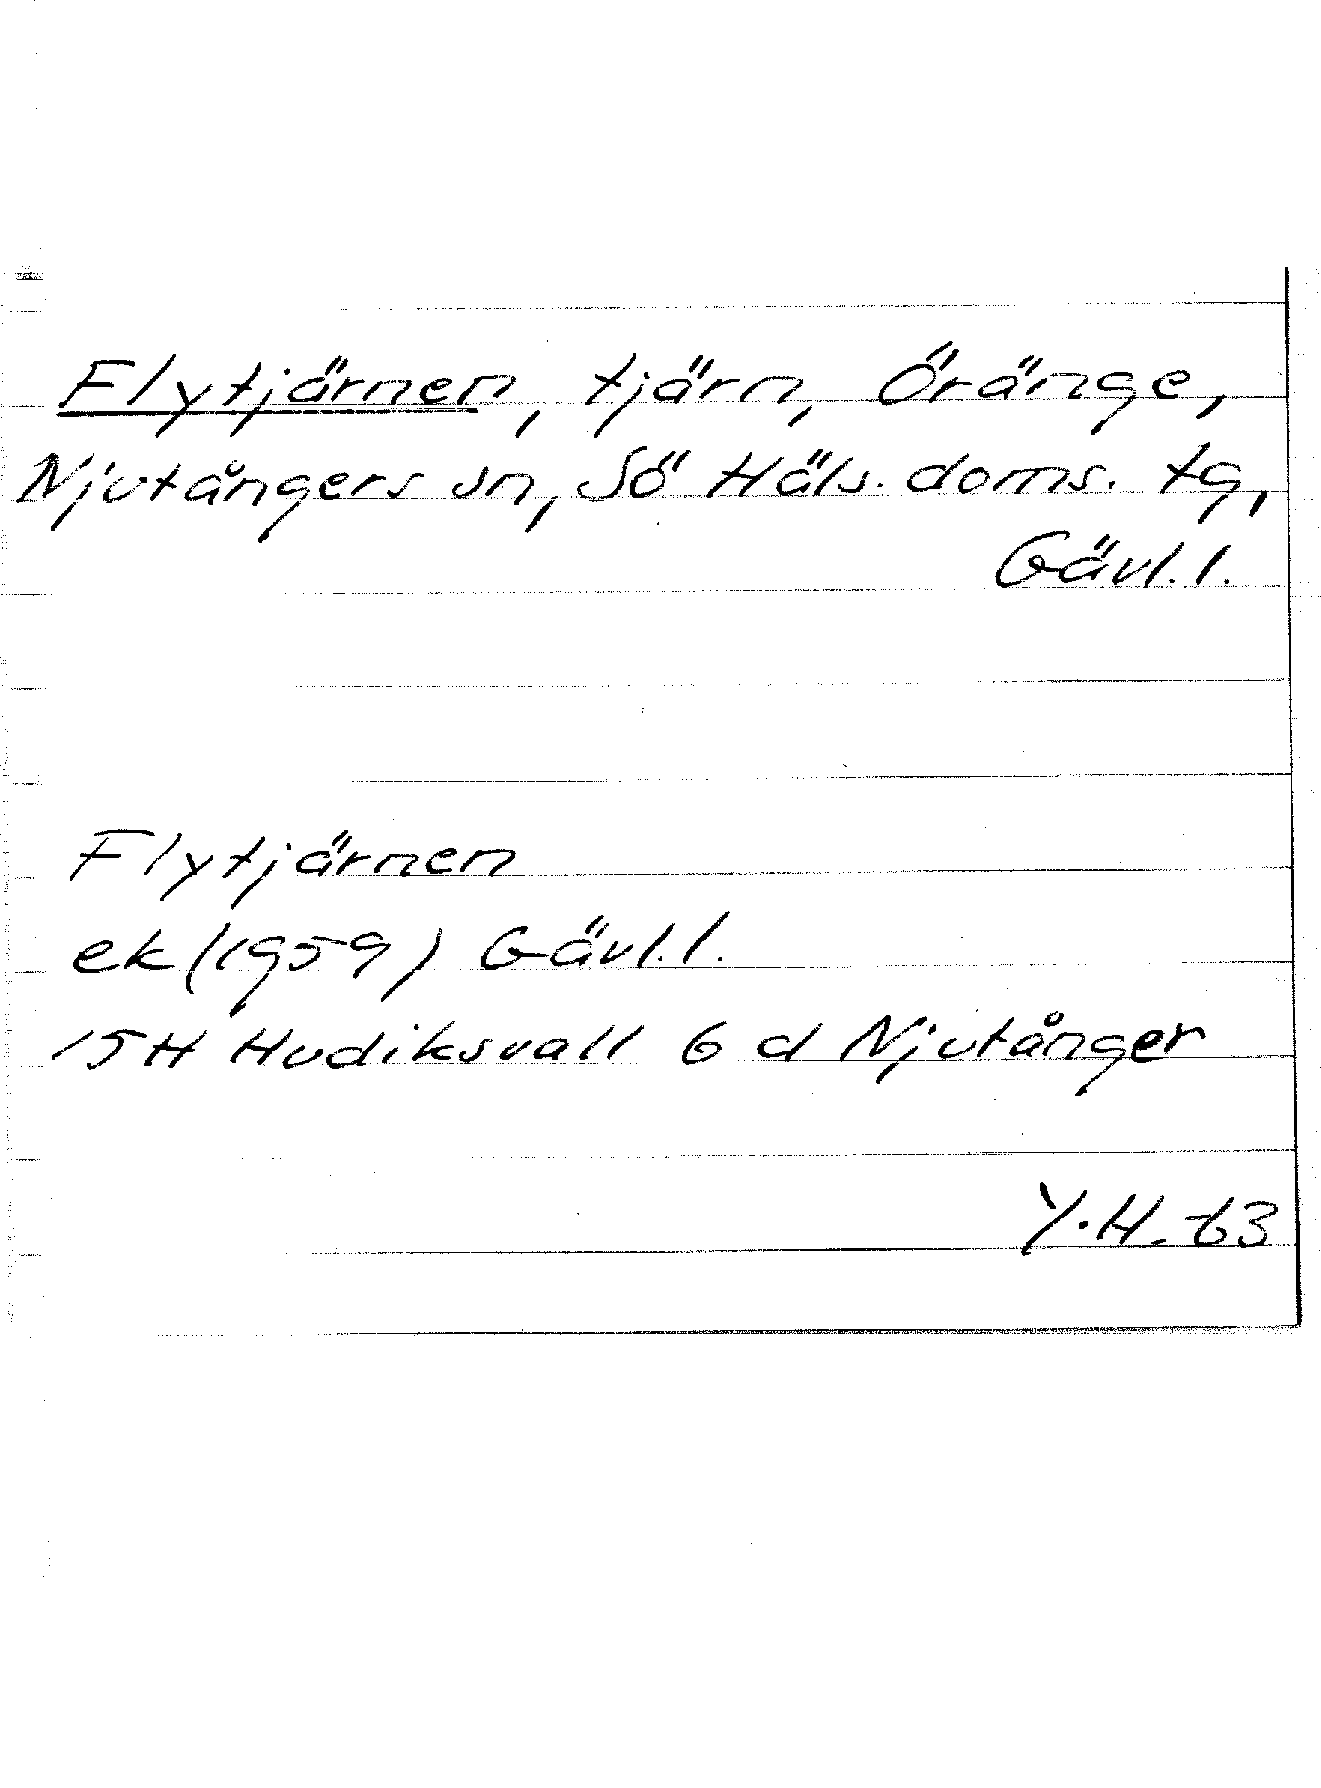 Flytjärnen, tjärn, Öränge,
Njutångers sn, Sö Häls. doms. tg,
Gävl. l.
Flytjärnen
ek (1959) Gävl. l.
15H Hudiksvall 6 d Njutånger
Y.H. 63